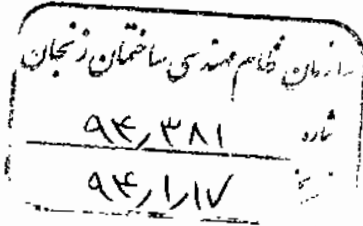 سازمان نظام مهندسی ساختمان زنجان
شماره ۹۴٫۳۸۱
تاریخ ۹۴٫۱٫۱۷